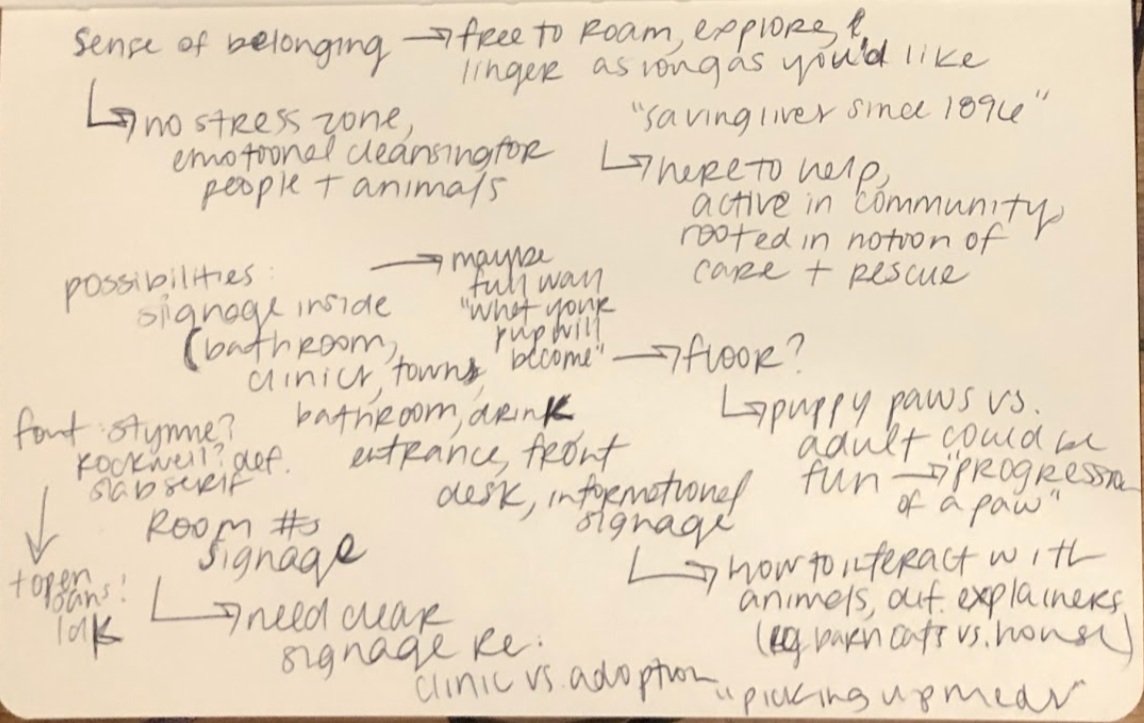 Sense of belonging → free to roam, explore, &
linger as long as you'd like
↳ no stress zone,
emotional cleansing for
people + animals
"saving lives since 1896"
↳ here to help,
active in community,
rooted in notion of
care + rescue
possibilities:
signage inside
(bathroom,
clinics, towns,
bathroom, drink
entrance, front
desk, informational
signage
→ maybe
full wall
"what your
pup will
become" → floor?
↳ puppy paws vs.
adult could be
fun → "progression
of a paw"
↳ how to interact with
animals, def. explainers
(eg barn cats vs. house)
font: stymie?
Rockwell? def.
slab serif
↓
+ open
sans!
idk
Room #s
signage
↳ need clear
signage re:
clinic vs. adoption
"picking up meds"